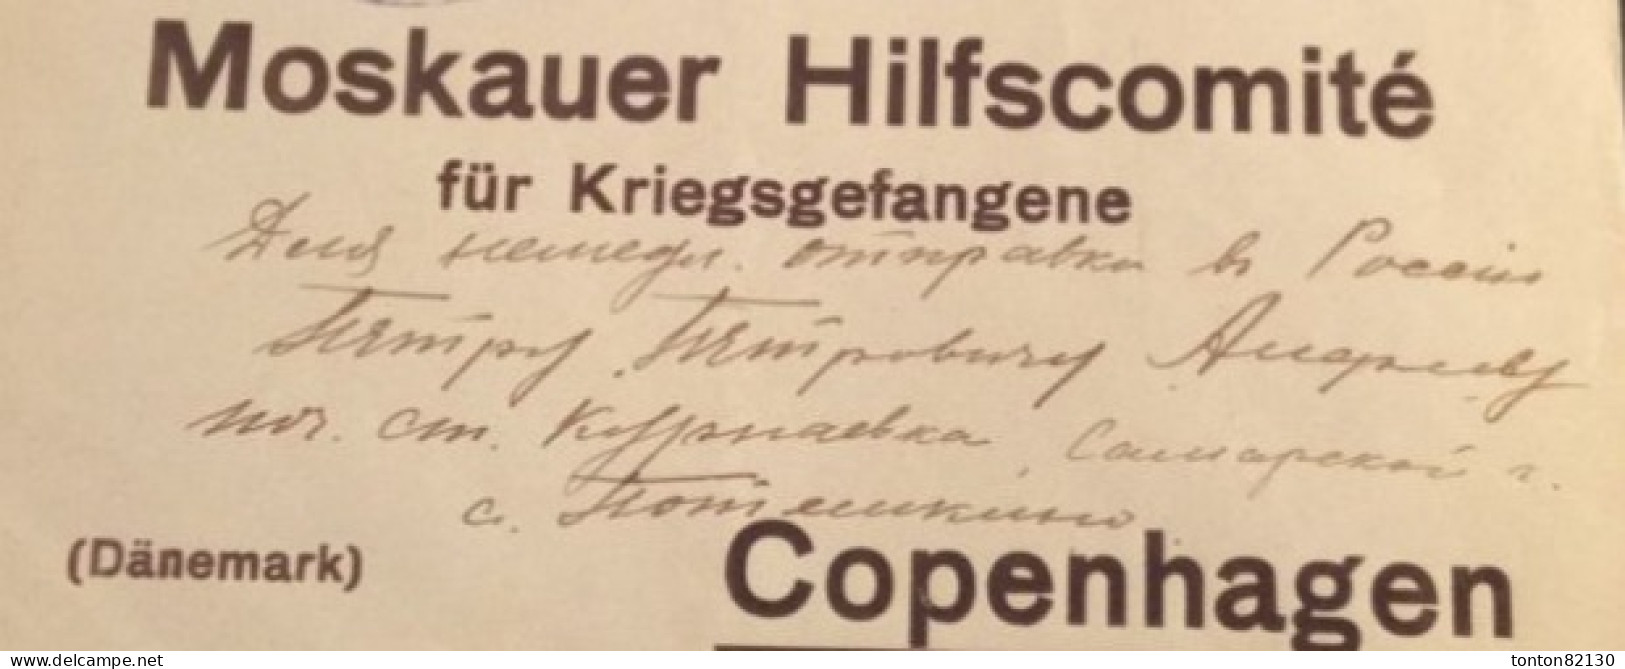 Moskauer Hilfscomité
für Kriegsgefangene
Для немедл. отправки в Россiю
Петру Петровичу
поч. ст. Самарской г.
с. Потемкино
(Dänemark)
Copenhagen
www.delcampe.net
tonton82130